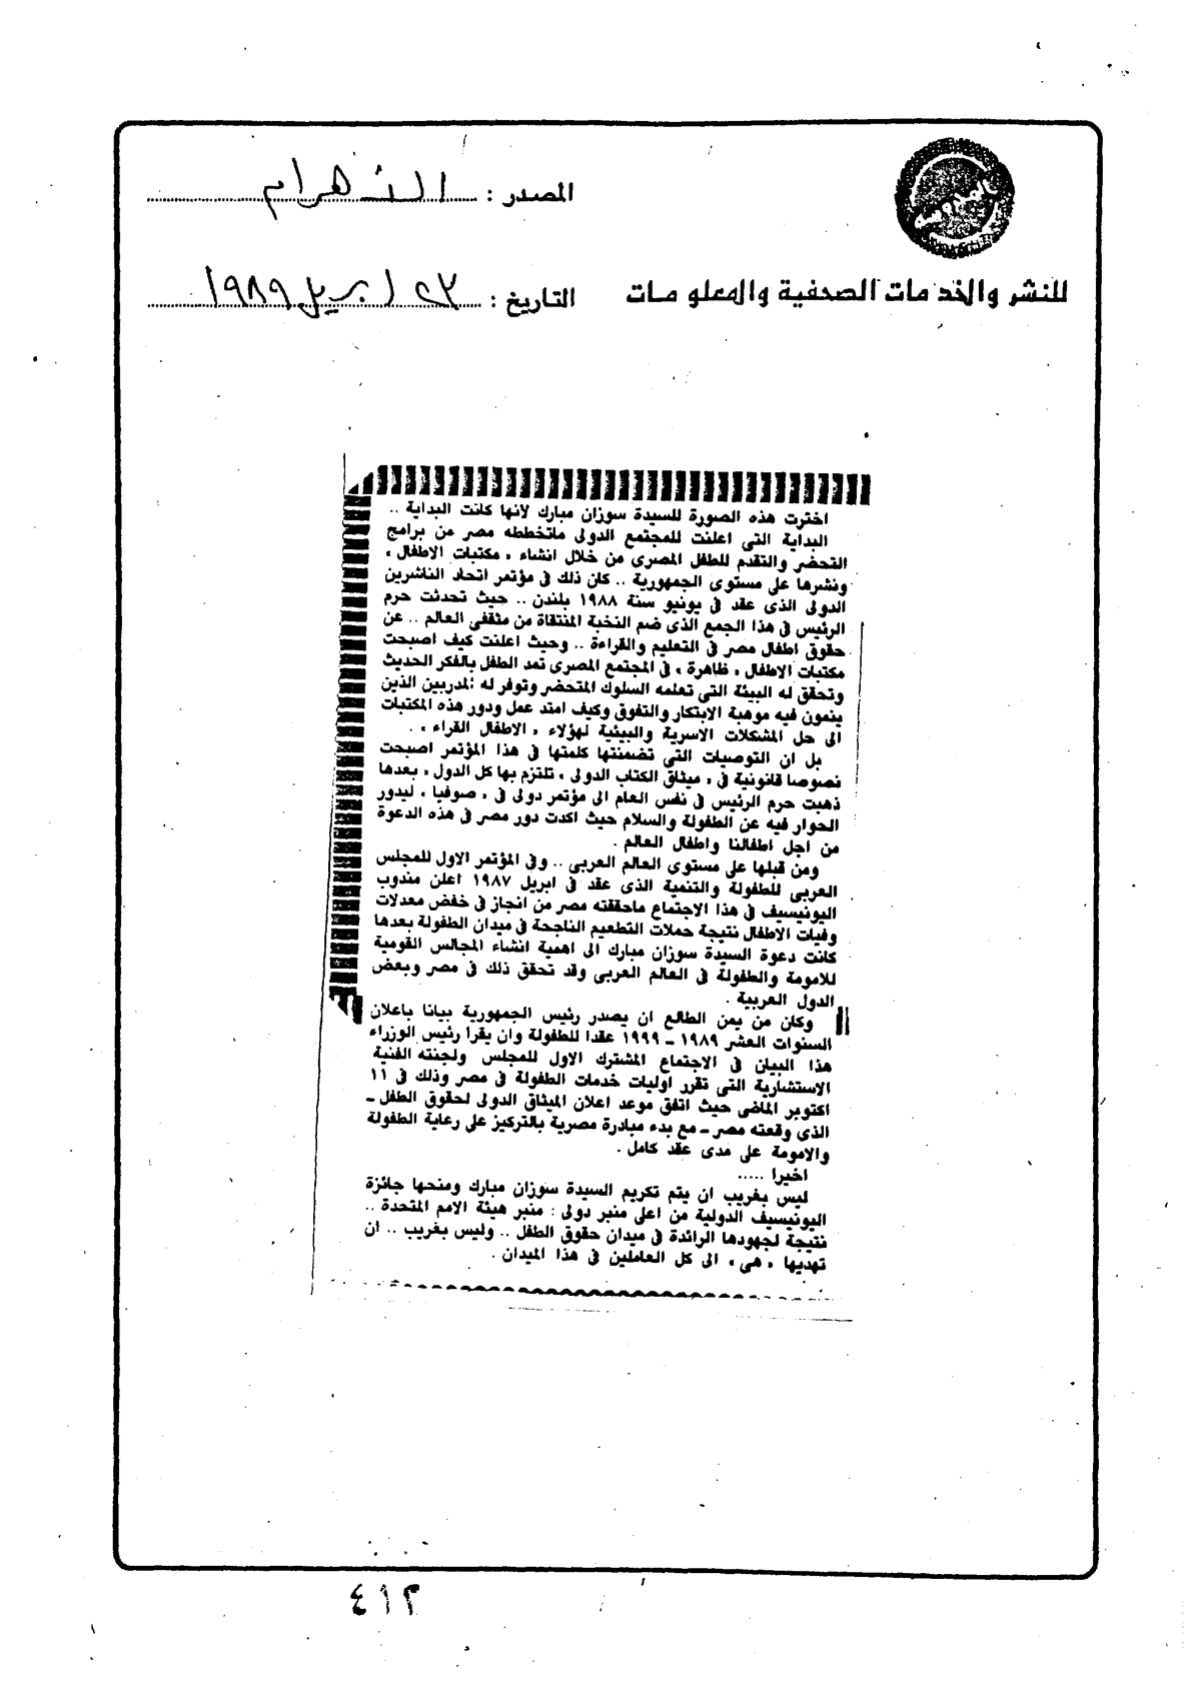 المصدر : الأهرام
للنشر والخدمات الصحفية والمعلومات
التاريخ : ٢٣ ابريل ١٩٨٩
اخترت هذه الصورة للسيدة سوزان مبارك لانها كانت البداية ..
البداية التى اعلنت للمجتمع الدولى ماتخططه مصر من برامج
التحضر والتقدم للطفل المصرى من خلال انشاء ، مكتبات الاطفال ،
ونشرها على مستوى الجمهورية .. كان ذلك فى مؤتمر اتحاد الناشرين
الدولى الذى عقد فى يونيو سنة ١٩٨٨ بلندن .. حيث تحدثت حرم
الرئيس فى هذا الجمع الذى ضم النخبة المنتقاة من مثقفى العالم .. عن
حقوق اطفال مصر فى التعليم والقراءة .. وحيث اعلنت كيف اصبحت
مكتبات الاطفال ، ظاهرة ، فى المجتمع المصرى تمد الطفل بالفكر الحديث
وتحقق له البيئة التى تعلمه السلوك المتحضر وتوفر له المدربين الذين
ينمون فيه موهبة الابتكار والتفوق وكيف امتد عمل ودور هذه المكتبات
الى حل المشكلات الاسرية والبيئية لهؤلاء ، الاطفال القراء ، .
بل ان التوصيات التى تضمنتها كلمتها فى هذا المؤتمر اصبحت
نصوصا قانونية فى ، ميثاق الكتاب الدولى ، تلتزم بها كل الدول ، بعدها
ذهبت حرم الرئيس فى نفس العام الى مؤتمر دولى فى ، صوفيا ، ليدور
الحوار فيه عن الطفولة والسلام حيث اكدت دور مصر فى هذه الدعوة
من اجل اطفالنا واطفال العالم .
ومن قبلها على مستوى العالم العربى .. وفى المؤتمر الاول للمجلس
العربى للطفولة والتنمية الذى عقد فى ابريل ١٩٨٧ اعلن مندوب
اليونيسيف فى هذا الاجتماع ماحققته مصر من انجاز فى خفض معدلات
وفيات الاطفال نتيجة حملات التطعيم الناجحة فى ميدان الطفولة بعدها
كانت دعوة السيدة سوزان مبارك الى اهمية انشاء المجالس القومية
للامومة والطفولة فى العالم العربى وقد تحقق ذلك فى مصر وبعض
الدول العربية .
وكان من يمن الطالع ان يصدر رئيس الجمهورية بيانا باعلان
السنوات العشر ١٩٨٩ - ١٩٩٩ عقدا للطفولة وان يقرا رئيس الوزراء
هذا البيان فى الاجتماع المشترك الاول للمجلس ولجنته الفنية
الاستشارية التى تقرر اوليات خدمات الطفولة فى مصر وذلك فى ١١
اكتوبر الماضى حيث اتفق موعد اعلان الميثاق الدولى لحقوق الطفل -
الذى وقعته مصر - مع بدء مبادرة مصرية بالتركيز على رعاية الطفولة
والامومة على مدى عقد كامل .
اخيرا .....
ليس بغريب ان يتم تكريم السيدة سوزان مبارك ومنحها جائزة
اليونيسيف الدولية من اعلى منبر دولى : منبر هيئة الامم المتحدة ..
نتيجة لجهودها الرائدة فى ميدان حقوق الطفل .. وليس بغريب .. ان
تهديها ، هى ، الى كل العاملين فى هذا الميدان .
٤١٢